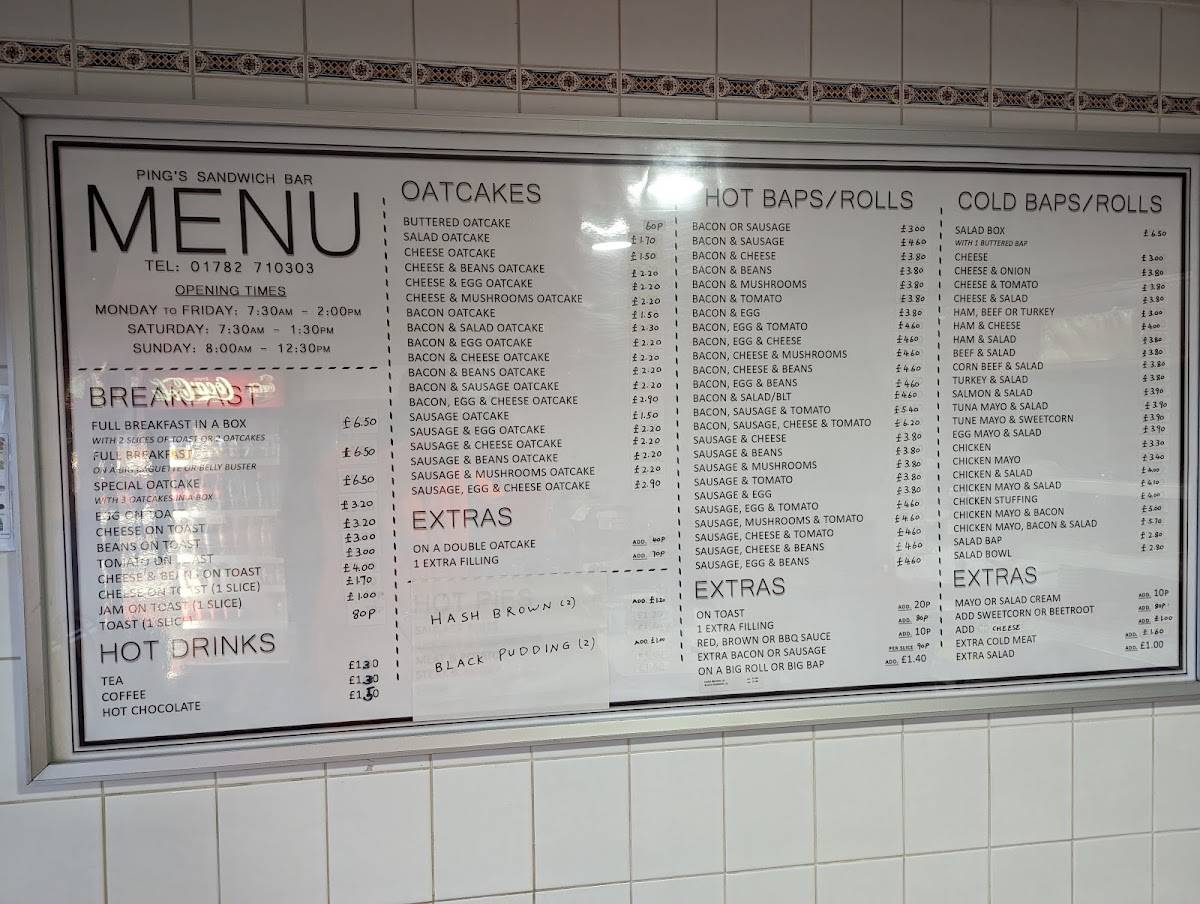 PING'S SANDWICH BAR
MENU
TEL: 01782 710303
OPENING TIMES
MONDAY TO FRIDAY: 7:30AM - 2:00PM
SATURDAY: 7:30AM - 1:30PM
SUNDAY: 8:00AM - 12:30PM
BREAKFAST
FULL BREAKFAST IN A BOX £6.50
WITH 2 SLICES OF TOAST OR 2 OATCAKES
FULL BREAKFAST £6.50
ON A BIG BAGUETTE OR BELLY BUSTER
SPECIAL OATCAKE £6.50
WITH 3 OATCAKES IN A BOX
EGG ON TOAST £3.20
CHEESE ON TOAST £3.20
BEANS ON TOAST £3.00
TOMATO ON TOAST £3.00
CHEESE & BEANS ON TOAST £4.00
CHEESE ON TOAST (1 SLICE) £1.70
JAM ON TOAST (1 SLICE) £1.00
TOAST (1 SLICE) 80P
HOT DRINKS
TEA £1.30
COFFEE £1.30
HOT CHOCOLATE £1.50
OATCAKES
BUTTERED OATCAKE 60P
SALAD OATCAKE £1.70
CHEESE OATCAKE £1.50
CHEESE & BEANS OATCAKE £2.20
CHEESE & EGG OATCAKE £2.20
CHEESE & MUSHROOMS OATCAKE £2.20
BACON OATCAKE £1.50
BACON & SALAD OATCAKE £2.30
BACON & EGG OATCAKE £2.20
BACON & CHEESE OATCAKE £2.20
BACON & BEANS OATCAKE £2.20
BACON & SAUSAGE OATCAKE £2.20
BACON, EGG & CHEESE OATCAKE £2.90
SAUSAGE OATCAKE £1.50
SAUSAGE & EGG OATCAKE £2.20
SAUSAGE & CHEESE OATCAKE £2.20
SAUSAGE & BEANS OATCAKE £2.20
SAUSAGE & MUSHROOMS OATCAKE £2.20
SAUSAGE, EGG & CHEESE OATCAKE £2.90
EXTRAS
ON A DOUBLE OATCAKE ADD. 60P
1 EXTRA FILLING ADD. 70P
HOT PIES
HASH BROWN (2) ADD. £1.20
BLACK PUDDING (2) ADD. £1.00
HOT BAPS/ROLLS
BACON OR SAUSAGE £3.00
BACON & SAUSAGE £4.60
BACON & CHEESE £3.80
BACON & BEANS £3.80
BACON & MUSHROOMS £3.80
BACON & TOMATO £3.80
BACON & EGG £3.80
BACON, EGG & TOMATO £4.60
BACON, EGG & CHEESE £4.60
BACON, CHEESE & MUSHROOMS £4.60
BACON, CHEESE & BEANS £4.60
BACON, EGG & BEANS £4.60
BACON & SALAD/BLT £4.60
BACON, SAUSAGE & TOMATO £5.40
BACON, SAUSAGE, CHEESE & TOMATO £6.20
SAUSAGE & CHEESE £3.80
SAUSAGE & BEANS £3.80
SAUSAGE & MUSHROOMS £3.80
SAUSAGE & TOMATO £3.80
SAUSAGE & EGG £3.80
SAUSAGE, EGG & TOMATO £4.60
SAUSAGE, MUSHROOMS & TOMATO £4.60
SAUSAGE, CHEESE & TOMATO £4.60
SAUSAGE, CHEESE & BEANS £4.60
SAUSAGE, EGG & BEANS £4.60
EXTRAS
ON TOAST ADD. 20P
1 EXTRA FILLING ADD. 80P
RED, BROWN OR BBQ SAUCE ADD. 10P
EXTRA BACON OR SAUSAGE PER SLICE 90P
ON A BIG ROLL OR BIG BAP ADD. £1.40
COLD BAPS/ROLLS
SALAD BOX £6.50
WITH 1 BUTTERED BAP
CHEESE £3.00
CHEESE & ONION £3.80
CHEESE & TOMATO £3.80
CHEESE & SALAD £3.80
HAM, BEEF OR TURKEY £3.00
HAM & CHEESE £4.00
HAM & SALAD £3.80
BEEF & SALAD £3.80
CORN BEEF & SALAD £3.80
TURKEY & SALAD £3.80
SALMON & SALAD £3.90
TUNA MAYO & SALAD £3.90
TUNE MAYO & SWEETCORN £3.90
EGG MAYO & SALAD £3.90
CHICKEN £3.30
CHICKEN MAYO £3.40
CHICKEN & SALAD £4.00
CHICKEN MAYO & SALAD £4.10
CHICKEN STUFFING £4.00
CHICKEN MAYO & BACON £5.00
CHICKEN MAYO, BACON & SALAD £5.70
SALAD BAP £2.80
SALAD BOWL £2.80
EXTRAS
MAYO OR SALAD CREAM ADD. 10P
ADD SWEETCORN OR BEETROOT ADD. 80P
ADD CHEESE ADD. £1.00
EXTRA COLD MEAT ADD. £1.60
EXTRA SALAD ADD. £1.00